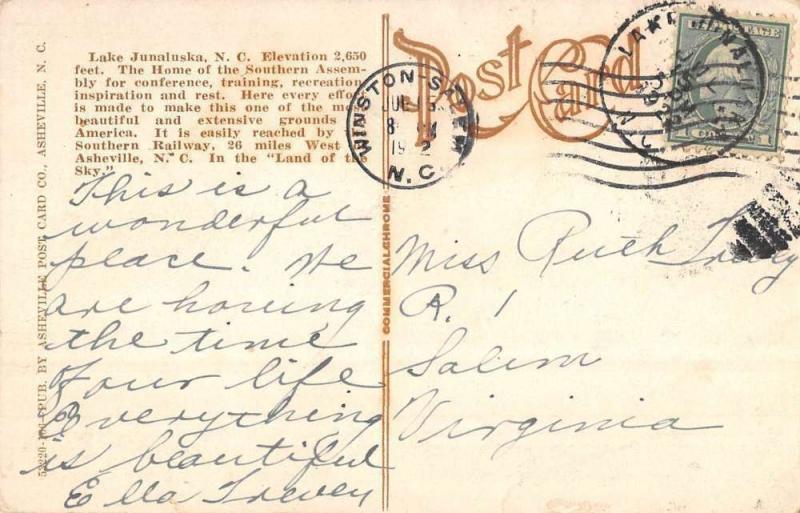 Lake Junaluska, N. C. Elevation 2,650
feet. The Home of the Southern Assem-
bly for conference, training, recreation
inspiration and rest. Here every effo
is made to make this one of the mos
beautiful and extensive grounds
America. It is easily reached by
Southern Railway, 26 miles West
Asheville, N. C. In the "Land of t
Sky."
PUB. BY ASHEVILLE POST CARD CO., ASHEVILLE, N. C.
This is a
wonderful
place. We
are having
the time
of our life
Everything
is beautiful
Ella Trevey
COMMERCIALCHROME
Post Card
WINSTON-S
JUL
8
N.C.
LAKE JUNALUSKA
N. C.
1
Miss Ruth Trevey
R. 1
Salem
Virginia